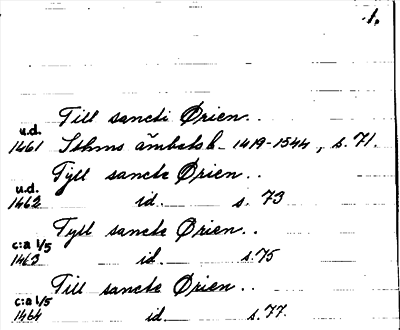 1.
Till sancti Ørien..
u.d.
1461 Sthms ämbetsb. 1419-1544, s. 71.
Tÿll sancte Ørien..
u.d.
1462 id. s. 73
Tyll sancte Ørien..
c:a 1/5
1463 id. s. 75
Till sancte Ørien..
c:a 1/5
1464 id. s. 77.